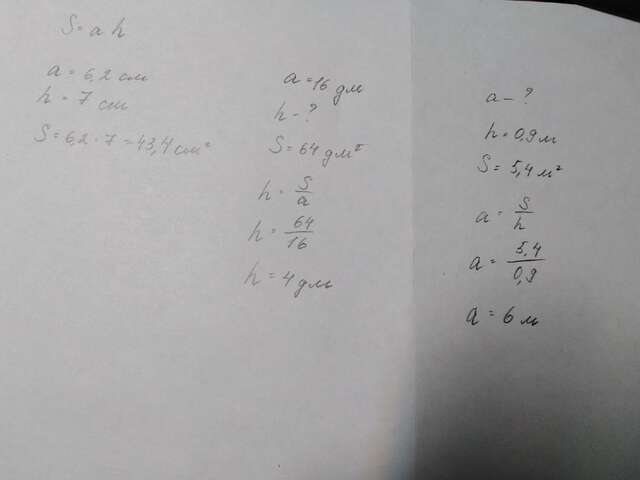 S = a h
a = 6,2 см
h = 7 см
S = 6,2 · 7 = 43,4 см²
a = 16 дм
h - ?
S = 64 дм²
h = S/a
h = 64/16
h = 4 дм
a - ?
h = 0,9 м
S = 5,4 м²
a = S/h
a = 5,4/0,9
a = 6 м